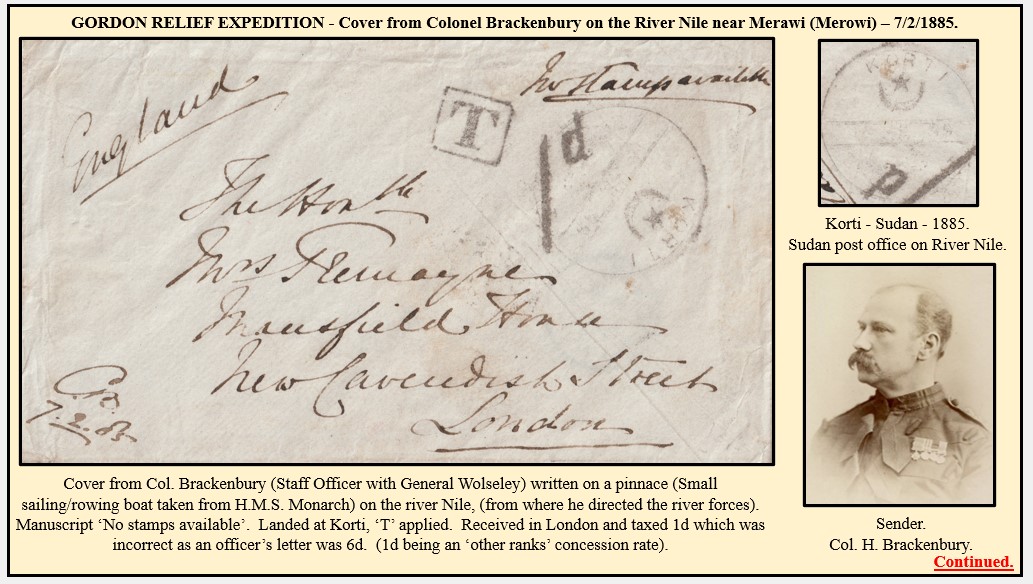 GORDON RELIEF EXPEDITION - Cover from Colonel Brackenbury on the River Nile near Merawi (Merowi) – 7/2/1885.
England
No Stamps available
T
1d
KORTI
The Honble
Mrs Tremayne
Mansfield House
New Cavendish Street
London
7.2.85
KORTI
1d
Korti - Sudan - 1885.
Sudan post office on River Nile.
Cover from Col. Brackenbury (Staff Officer with General Wolseley) written on a pinnace (Small
sailing/rowing boat taken from H.M.S. Monarch) on the river Nile, (from where he directed the river forces).
Manuscript ‘No stamps available’.  Landed at Korti, ‘T’ applied.  Received in London and taxed 1d which was
incorrect as an officer’s letter was 6d.  (1d being an ‘other ranks’ concession rate).
Sender.
Col. H. Brackenbury.
Continued.